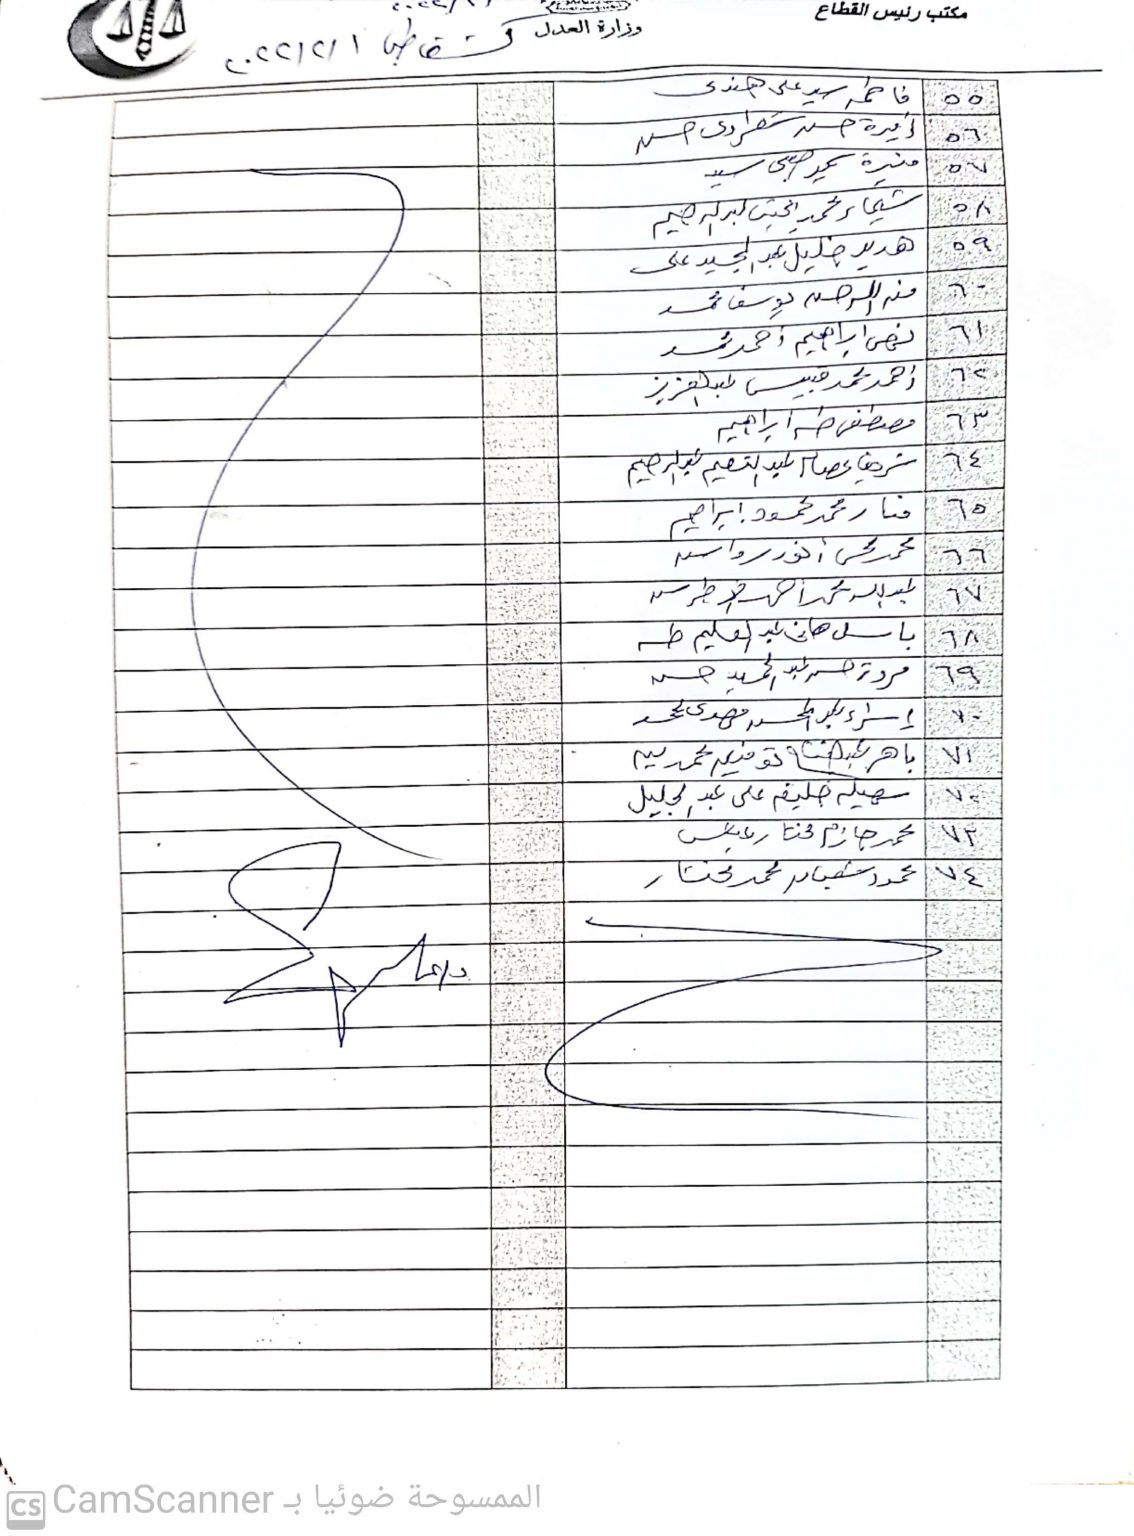 مكتب رئيس القطاع
وزارة العدل
كشف أطباء ٢٠٢٢/٢/١
٥٥ فاطمه سيد على هندى
٥٦ أميرة حسن شعراوى حسن
٥٧ منيرة سيد
٥٨ شيماء محمد عبد الرحيم
٥٩ هدير خليل عبد المجيد على
٦٠ منه الرحمن يوسف محمد
٦١ نهى ابراهيم أحمد محمد
٦٢ أحمد محمد عبد العزيز
٦٣ مصطفى طه ابراهيم
٦٤ شريف عصام عبد المنعم عبد الرحيم
٦٥ منار محمد محمود ابراهيم
٦٦ محمد أنور
٦٧ عبد الله محمد أحمد
٦٨ باسل هانى عبد العليم طه
٦٩ مروة حسن عبد الحميد حسن
٧٠ إسراء عبد المحسن مهدى محمد
٧١ باهر عبد الفتاح توفيق محمد
٧٢ سهيله خليفه على عبد الجليل
٧٣ محمد حازم مختار عباس
٧٤ محمود شعبان محمد مختار
CS CamScanner الممسوحة ضوئيا بـ